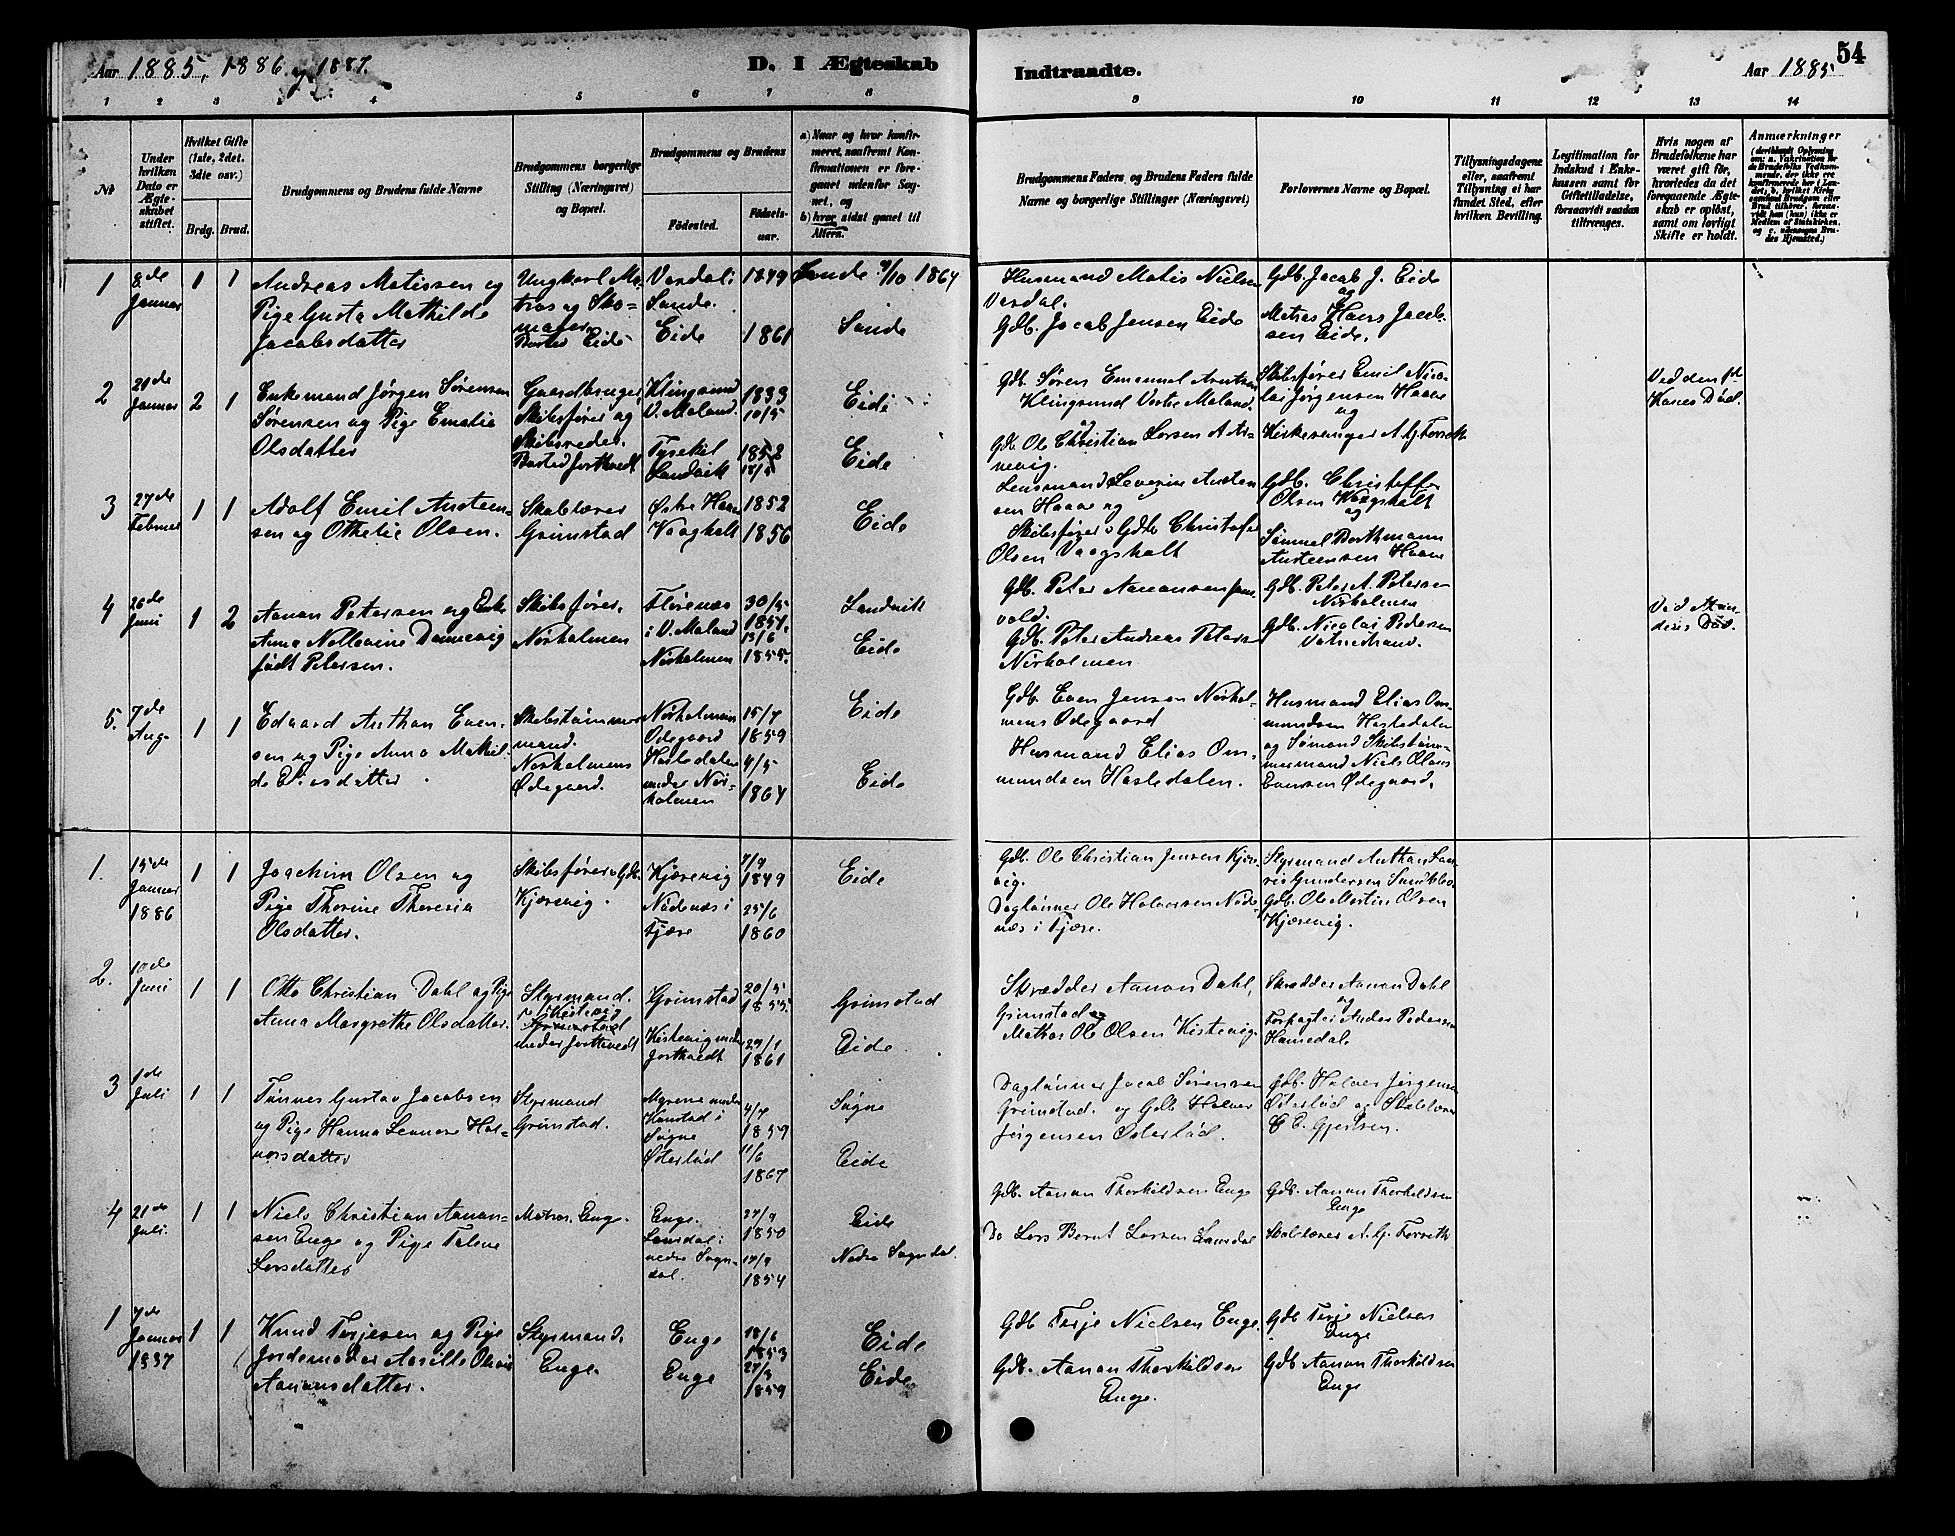 Aar 1885, 1886 og 1887.
D. I Ægteskab
Indtraadte.
Aar 1885
54
1 2 3 4 5 6 7 8 9 10 11 12 13 14
No
Under hvilken Dato er Ægteskabet stiftet.
Hvilket Gifte (1ste, 2det, 3die osv.)
Brdg. Brud.
Brudgommens og Brudens fulde Navne
Brudgommens borgerlige Stilling (Næringsvei) og Bopæl.
Brudgommens og Brudens
Fødested.
Fødselsaar.
a) Naar og hvor konfirmeret, saafremt Konfirmationen er foregaaet udenfor Sognet, og
b) hvor sidst gaaet til Alters.
Brudgommens Faders og Brudens Faders fulde Navne og borgerlige Stillinger (Næringsvei)
Forlovernes Navne og Bopæl.
Tillysningsdagene eller, saafremt Tillysning ei har fundet Sted, efter hvilken Bevilling.
Legitimation for Indskud i Enkekassen samt for Giftetilladelse, forsaavidt saadan tiltrænges.
Hvis nogen af Brudefolkene har været gift før, hvorledes da det foregaaende Ægteskab er opløst, samt om lovligt Skifte er holdt.
Anmærkninger
1 8de Januar 1 1
Andreas Matissen og
Pige Gusta Mathilde
Jacobsdatter
Ungkarl Ma-
tros og Sko-
mager
Bosted Eide
Vardal i
Sande. 1849
Eide 1861
Sande 2/10 1864
Sande
Husmand Matis Nielsen
Vardal.
Gdb. Jacob Jensen Eide
Gdb. Jacob J. Eide
og
Matros Hans Jacob-
sen Eide.
2 21de Januar 2 1
Enkemand Jørgen Sørensen
Sørensen og Pige Emelie
Olsdatter
Gaardbruger
Skibsfører og
Skibsreder.
Bosted Jortveit
Klingsund
V. Moland. 1833 10/5
Tysekil
Landvik 1852
Eide
Eide
Gdb. Søren Emanuel Arntsen
Klingsund Vestre Moland.
og
Gdb. Ole Christian Larsen
Skibsfører Emil Nico-
lai Jørgensen Haave
og
Kirkesanger A. G. Torseth
Ved den 1st
Kones Død.
3 27de Februar 1 1
Adolf Emil Austen-
sen og Othelie Olsen.
Skolelærer
Grimstad
Østre Haave 1852
Vaagholt 1856
Eide
Lensmand Severin Austen
sen Haave og
Skibsfører & Gdb. Christofer
Olsen Vaagsholt
Gdb. Christoffer
Olsen Vaagsholt
og
Samuel Berthmann
Austensen Haave
4 26de Juni 1 2
Aanon Petersen og Enke
Anna Nellevine Dannevig
født Petersen.
Skibsfører.
Norholmen
Flørenæs
i V. Moland 30/5 1851.
Norholmen 13/6 1855.
Landvik
Eide
Gdb. Peter Aanonsen
Gdb. Peter Andreas Peters
Norholmen
Gdb. Peter A. Petersen
Norholmen
Gdb. Nicolai Pedersen
Vatnestrand.
Ved Man-
dens Død.
5. 7de Aug. 1 1
Edvard Anthon Even-
sen og Pige Anna Mathil-
de Eliasdatter
Skibstømmer
mand.
Norholmens
Ødegaard.
Norholmens
Ødegaard 15/7 1859
Hasledalen
under Nor-
holmen 4/5 1864
Eide
Eide
Gdb. Even Jensen Norhol-
mens Ødegaard
Husmand Elias Om-
mundsen Hasledalen.
Husmand Elias Om-
mundsen Hasledalen
og Sømand Skibstøm-
mermand Niels Olaus
Evensen Ødegaard.
1. 15de Januar 1886 1 1
Joachim Olsen og
Pige Thorine Theresia
Olsdatter.
Skibsfører & Gdb.
Kjørevig.
Kjørevig 7/7 1849
Nødenæs i
Fjære 25/6 1860
Eide
Gdb. Ole Christian Jensen Kjøre-
vig.
Daglønner Ole Halvorsen Nøde-
næs i Fjære.
Styrmand Anthon Lau-
ris Gundersen
Gdb. Ole Martin Olsen
Kjørevig.
2. 10de Juni 1 1
Otto Christian Dahl og Pige
Anna Margrethe Olsdatter.
Styrmand.
Kistevig
under Jortveit
Grimstad 20/5 1855.
Kistevig under
Jortveit 29/1 1861
Grimstad
Eide
Skrædder Aanon Dahl,
Grimstad og
Matros Ole Olsen Kistevig.
Skrædder Aanon Dahl
og
Forpagter Anders Pedersen
Homedal.
3 1de Juli 1 1
Tønnes Gustav Jacobsen
og Pige Hanna Lenore Hal-
vorsdatter
Styrmand
Grimstad.
Myrene under
Honstad i
Søgne 4/7 1859
Østerlød 11/6 1867
Søgne
Eide
Daglønner Jacob Sørensen
Grimstad. og Gdb. Halvor
Jørgensen Østerlød.
Gdb. Halvor Jørgensen
Østerlød og Skolelærer
C. C. Gjertsen.
4 21de Juli. 1 1
Niels Christian Aanon-
sen Enge og Pige Talene
Larsdatter
Matros. Enge.
Enge. 27/9 1850
Lansdal i
nedre Sogn-
dal. 1854
Eide
Nedre Sogndal.
Gdb. Aanon Thorkildsen Enge
Do Lars Bernt Larsen Lansdal
Gdb. Aanon Thorkildsen
Enge
Skolelærer A. G. Torseth
1 7de Januar 1887 1 1
Knud Terjesen og Pige
Jordemoder Aasille Olsine
Aanonsdatter.
Styrmand.
Enge.
Enge 18/6 1853
Enge 27/3 1859
Eide
Eide
Gdb Terje Nielsen Enge.
Gdb. Aanon Thorkildsen
Enge.
Gdb Terje Nielsen
Enge
Gdb Aanon Thorkildsen
Enge